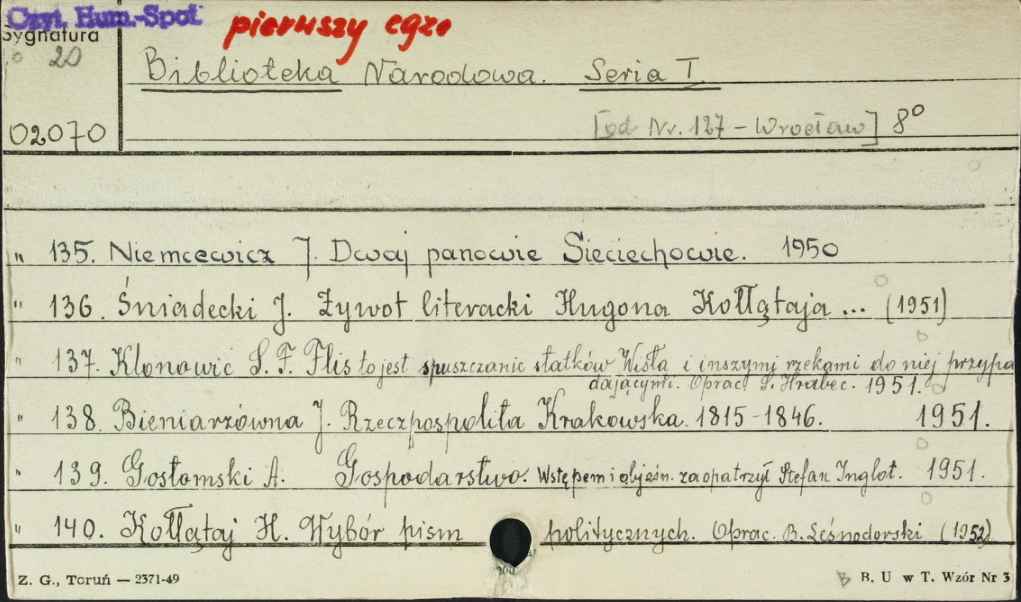 Czyt. Hum.-Społ
pierwszy egz.
Sygnatura
20
Biblioteka Narodowa. Seria I
02070
[od Nr. 127 - Wrocław] 8°
" 135. Niemcewicz J. Dwaj panowie Sieciechowie. 1950
" 136. Śniadecki J. Żywot literacki Hugona Kołłątaja ... (1951)
" 137. Klonowic S. F. Flis to jest spuszczanie statków Wisłą i inszymi rzekami do niej przypa
dającymi. Oprac. S. Hrabec. 1951.
" 138. Bieniarzówna J. Rzeczpospolita Krakowska. 1815-1846. 1951.
" 139. Gostomski A. Gospodarstwo. Wstępem i objaśn. zaopatrzył Stefan Inglot. 1951.
" 140. Kołłątaj H. Wybór pism politycznych. Oprac. B. Leśnodorski (1952)
Z. G., Toruń — 2371-49
B. U w T. Wzór Nr 3